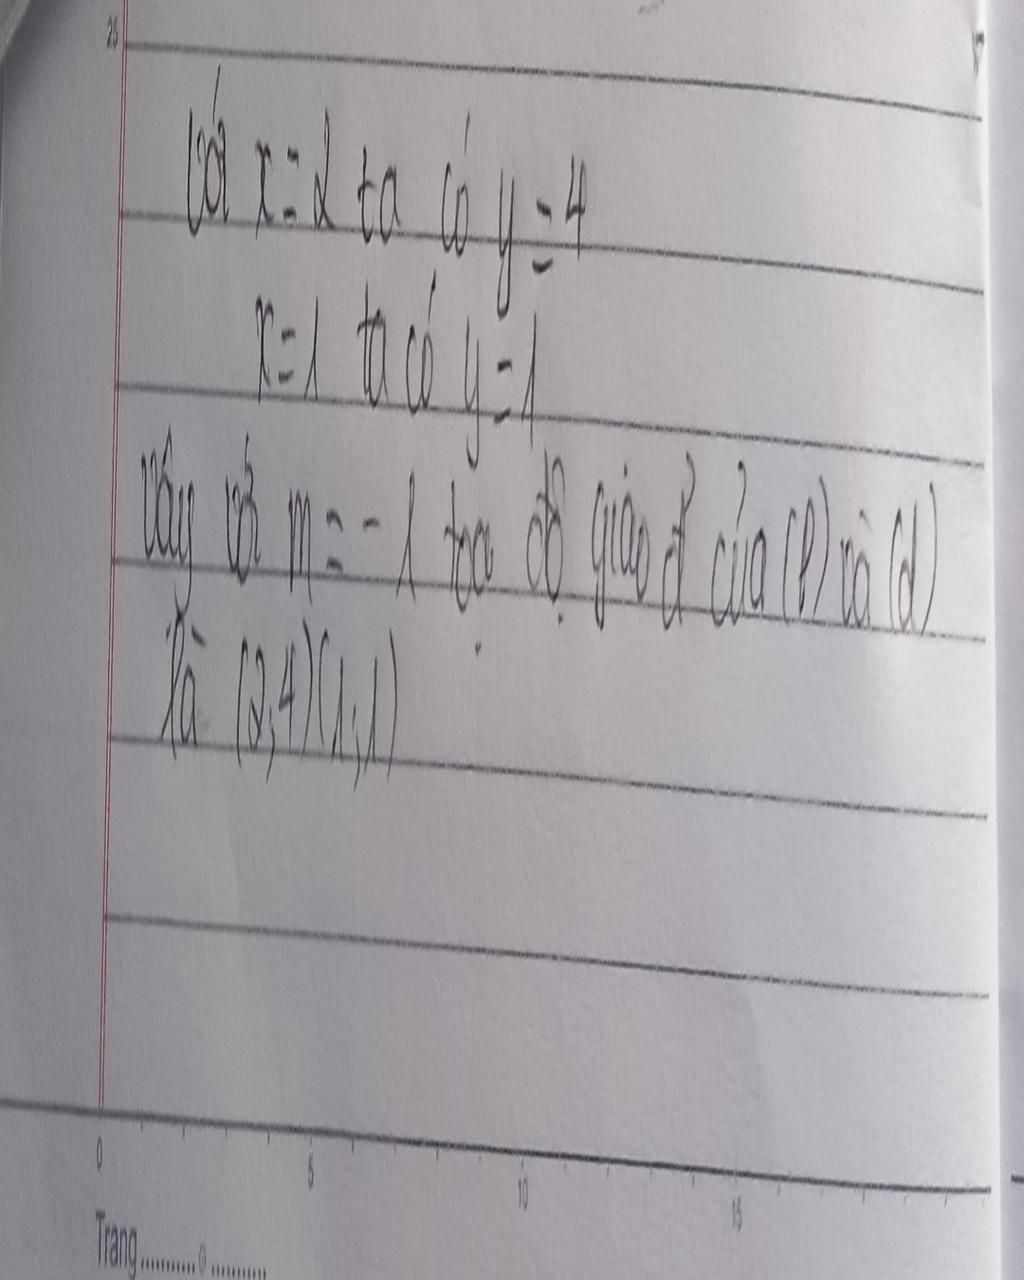 25
Với x = 2 ta có y = 4
x = 1 ta có y = 1
Vậy với m = -1 tọa độ giao đ' của (P) và (d)
là (2;4)(1;1)
0 5 10 15
Trang